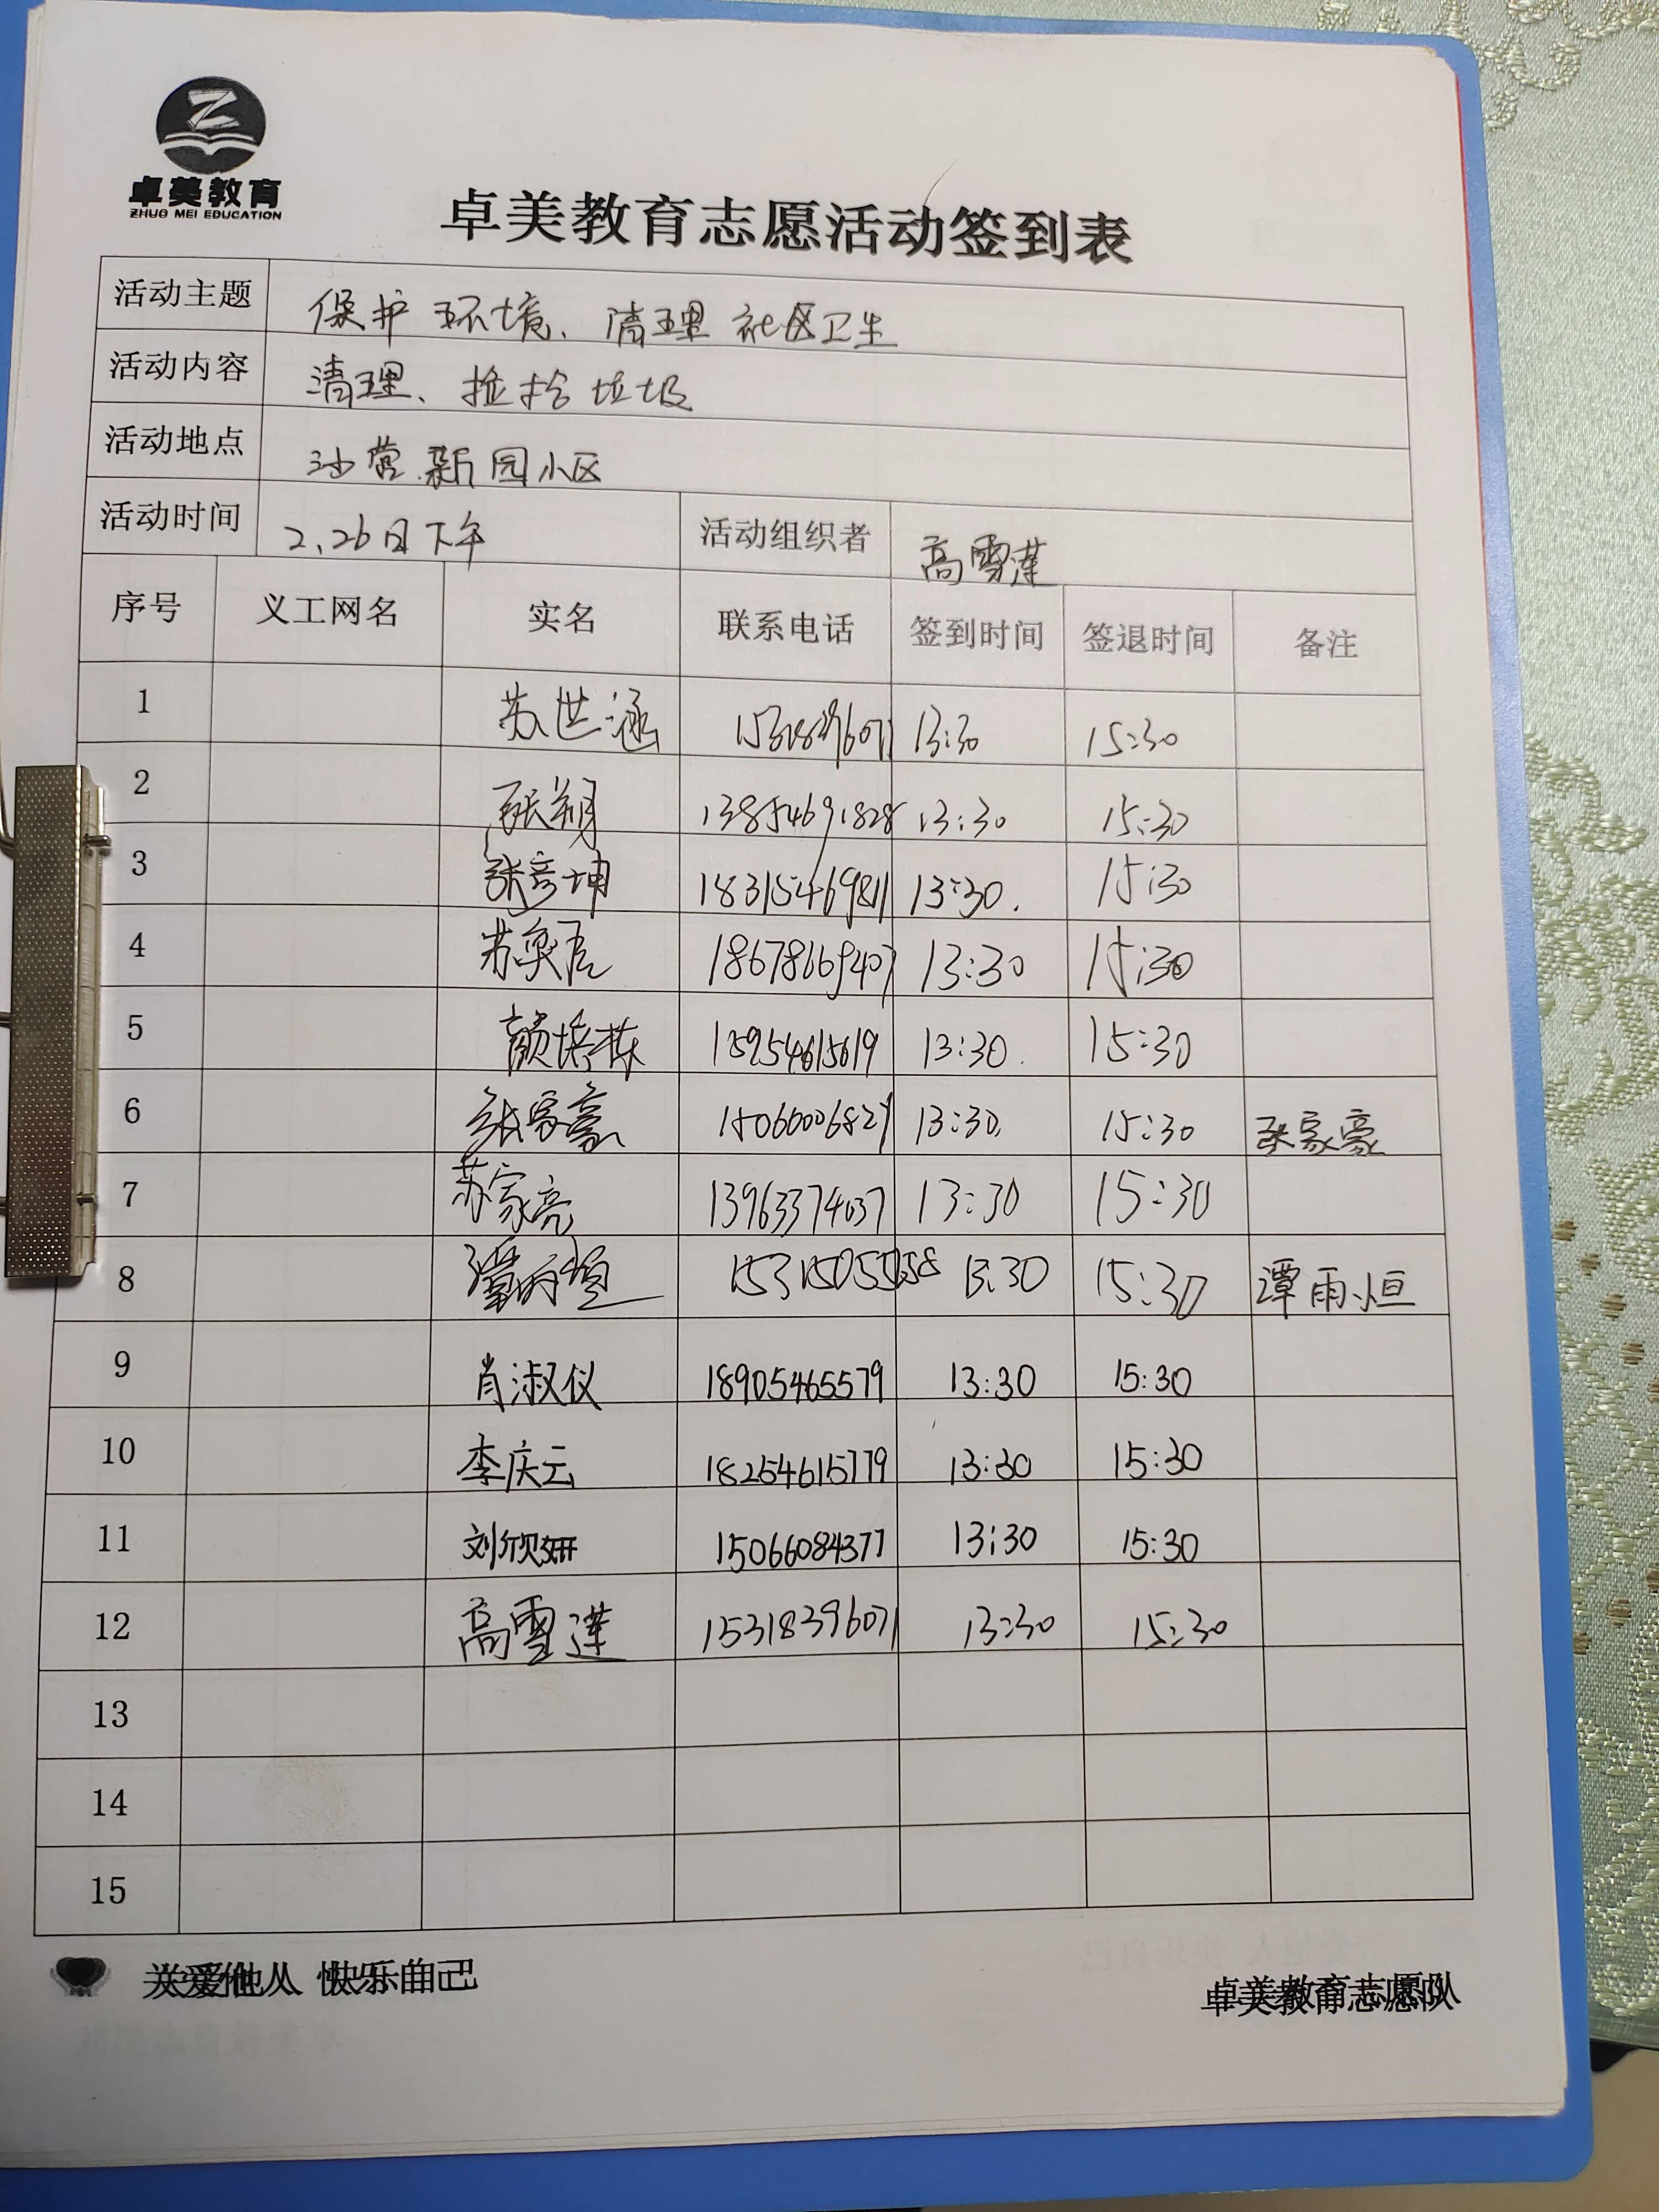 卓美教育
ZHUO MEI EDUCATION
卓美教育志愿活动签到表
活动主题 保护环境、清理社区卫生
活动内容 清理、捡拾垃圾
活动地点 沙营新园小区
活动时间 2.26日下午 活动组织者 高雪莲
序号 义工网名 实名 联系电话 签到时间 签退时间 备注
1 苏世涵 13:30 15:30
2 张朔 13854691828 13:30 15:30
3 张彦坤 18315469811 13:30. 15:30
4 苏奕 18678669407 13:30 15:30
5 颜培栋 15954615619 13:30. 15:30
6 张家豪 15066006827 13:30. 15:30 张家豪
7 苏家亮 13963374037 13:30 15:30
8 谭雨恒 13:30 15:30 谭雨恒
9 肖淑仪 18905465579 13:30 15:30
10 李庆云 18254615779 13:30 15:30
11 刘欣妍 15066084377 13:30 15:30
12 高雪莲 15318396071 13:30 15:30
13
14
15
关爱他人 快乐自己
卓美教育志愿队